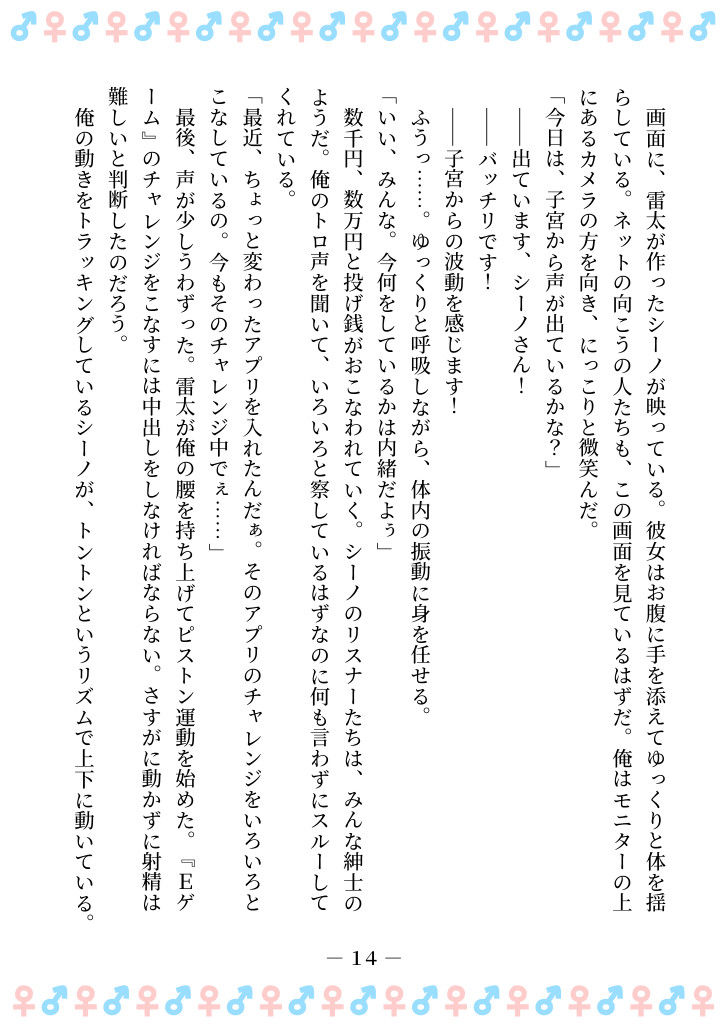 画面に、雷太が作ったシーノが映っている。彼女はお腹に手を添えてゆっくりと体を揺
らしている。ネットの向こうの人たちも、この画面を見ているはずだ。俺はモニターの上
にあるカメラの方を向き、にっこりと微笑んだ。
「今日は、子宮から声が出ているかな？」
――出ています、シーノさん！
――バッチリです！
――子宮からの波動を感じます！
ふうっ……。ゆっくりと呼吸しながら、体内の振動に身を任せる。
「いい、みんな。今何をしているかは内緒だよぅ」
数千円、数万円と投げ銭がおこなわれていく。シーノのリスナーたちは、みんな紳士の
ようだ。俺のトロ声を聞いて、いろいろと察しているはずなのに何も言わずにスルーして
くれている。
「最近、ちょっと変わったアプリを入れたんだぁ。そのアプリのチャレンジをいろいろと
こなしているの。今もそのチャレンジ中でぇ……」
最後、声が少しうわずった。雷太が俺の腰を持ち上げてピストン運動を始めた。『Ｅゲ
ーム』のチャレンジをこなすには中出しをしなければならない。さすがに動かずに射精は
難しいと判断したのだろう。
俺の動きをトラッキングしているシーノが、トントンというリズムで上下に動いている。
― 14 ―